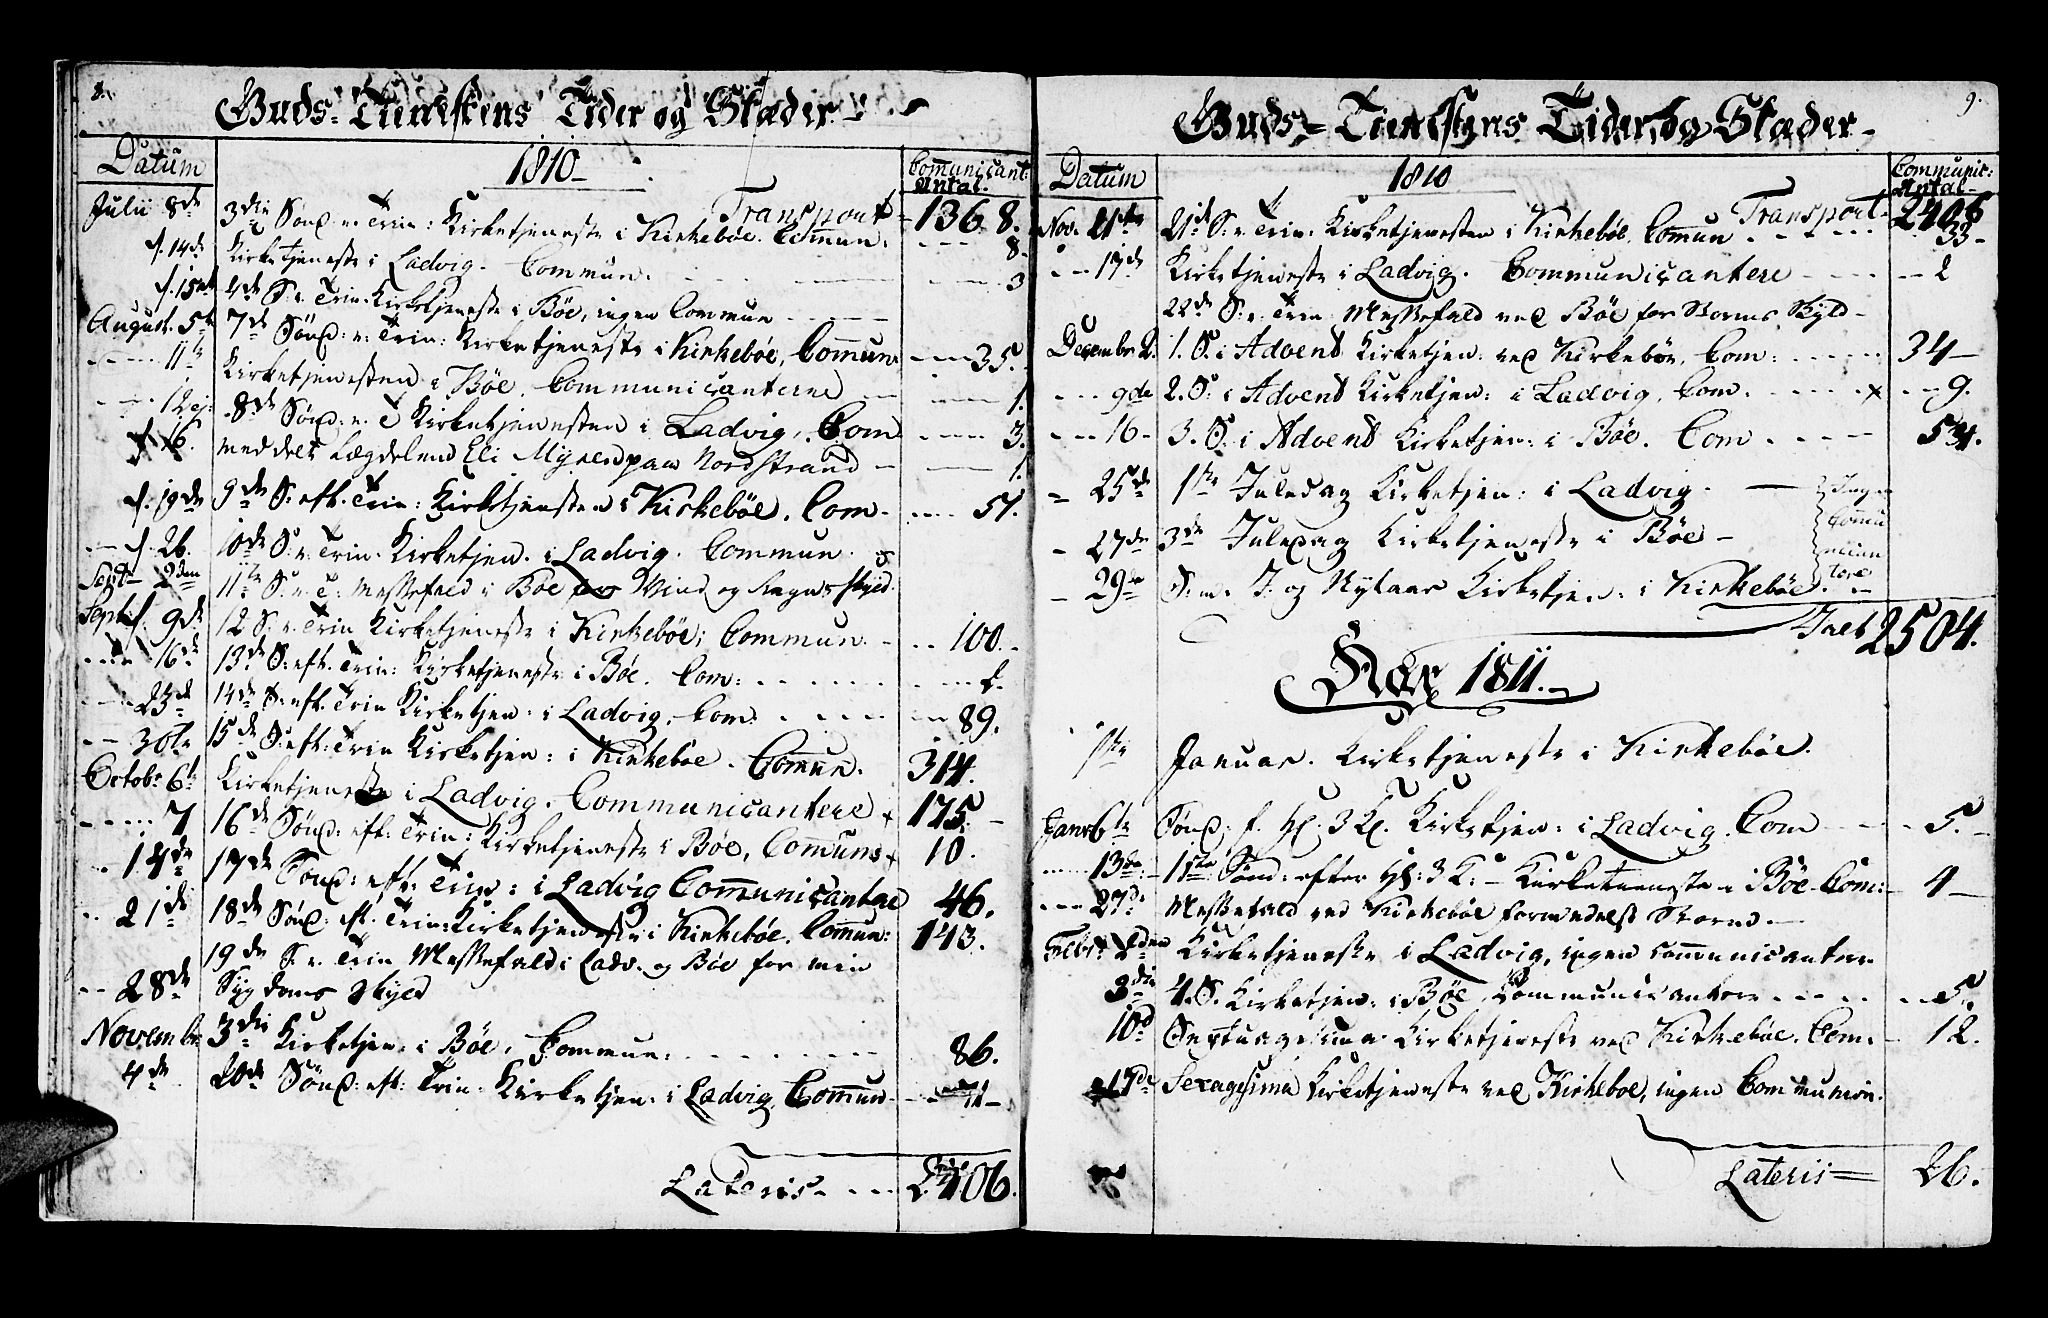 8.
Guds Tieneskens Tider og Stæder
Datum
1810
Comunicant: Antal.
Transport 1368.
Julii 8de 3die Sönd. e. Trin: Kirketjeneste i Kirkebøe. Commun: 8.
d. 14de Kirketjeneste i Ladvig. Commun. 3
d. 15de 4de S. e. Trin. Kirketjeneste i Böe, ingen Commun
August. 5te 7de Sönd: e. Trin: Kirketjeneste i Kirkeböe, Commun 35.
11te Kirketjenesten i Böe. Communicanterne 1.
12 8de Sönd. e. T Kirketjenesten i Ladvig, Com 3.
16. med det Lægdelem Eli Myren paa Nordstrand 1.
d. 19de 9de S. eft. Trin: Kirketjenesten i Kirkeböe. Com 57.
d. 26. 10de S. e. Trin. Kirketjen. i Ladvig. Commun.
Sept. 2den 11te S. e. T. Messefald i Böe for Wind og Regns Skyld
Septb. 9de 12 S. e. Trin Kirketjeneste i Kirkeböe; Commun. 100.
16de 13de S. eft. Trin: Kirketjeneste i Böe. Com:
23de 14de S. eft. Trin Kirketjen: i Ladvig, Com: 89.
30te 15de S. eft: Trin Kirketjen: i Kirkeböe. Commun. 314.
Octobr 6te Kirketjeneste i Ladvig. Communicantere 175.
7 16de Sönd: eft: Trin: Kirketjeneste i Böe, Communs 10.
14de 17de Sönd: eft: Trin: i Ladvig Communicantere 46.
21de 18de Sönd: eft. Trin: Kirketjeneste i Kirkeböe. Commun: 143.
19de S. e. Trin Messefald i Ladv. og Böe for min
28de Sygdoms Skyld
Novembr 3die Kirketjen: i Böe, Commun: 86.
4de 20de Sönd: eft: Trin: Kirketjen: i Ladvig, Commun 71
Lateris 2406.
9.
Guds Tienestens Tider og Stæder
Datum
1810
Communic: Antal
Transport 2406
Nov. 11te 21de S. e. Trin: Kirketjenesten i Kirkeböe, Commun 33
17de Kirketjeneste i Ladvig. Communicantere 2
22de S. e. Trin Messefald ved Böe for Storms Skyld
Decembr 2. 1. S. i Advent Kirketjen: ved Kirkeböe, Com: 34
9de 2. S. i Advent Kirketjen: i Ladvig, Com. 9.
16 3. S. i Advent Kirketjen: i Böe. Com 54.
25de 1ste Juledag Kirketjen: i Ladvig.
27de 3de Juledag Kirketjeneste i Böe
29de S. m. J. og Nytaar Kirketjen: i Kirkeböe.
Ingen Communicantere
2504.
Aar 1811.
1ste Januar. Kirketjeneste i Kirkeböe.
Janr 6te Sönd. f. Hl. 3 K. Kirketjen: i Ladvig. Com 5.
13de 1ste Sönd: efter Hl: 3 K: Kirketieneste i Böe Com: 4
27de Messefald ved Kirkeböe formedelst Storm
Febr. 2den Kirketjeneste i Ladvig, ingen communicantere
3die 4. S. Kirketjen: i Böe, Communicantere 5.
10d Septuagesima Kirketjeneste ved Kirkeböe. Com. 12.
17de Sexagesima Kirketjeneste ved Kirkeboe, ingen Communion.
Lateris 26.